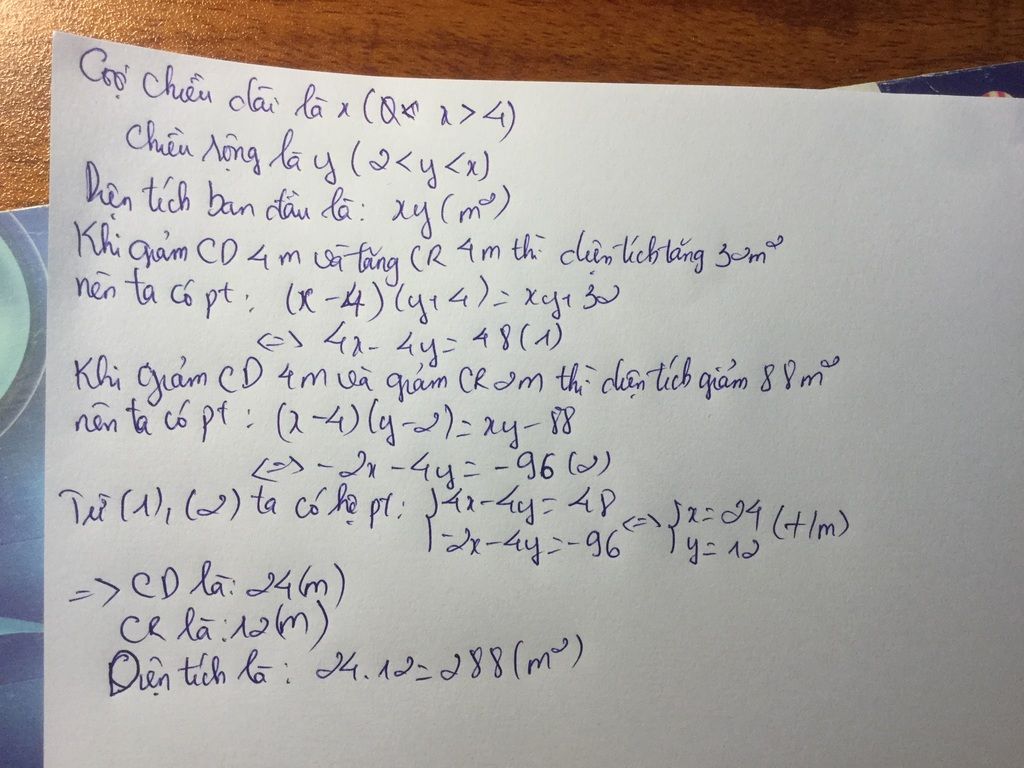 Gọi chiều dài là x (x > 4)
Chiều rộng là y (2 < y < x)
Diện tích ban đầu là: xy (m²)
Khi giảm CD 4 m và tăng CR 4 m thì diện tích tăng 32 m²
nên ta có pt: (x - 4)(y + 4) = xy + 32
<=> 4x - 4y = 48 (1)
Khi giảm CD 4 m và giảm CR 2m thì diện tích giảm 88 m²
nên ta có pt: (x - 4)(y - 2) = xy - 88
<=> -2x - 4y = -96 (2)
Từ (1), (2) ta có hệ pt: { 4x - 4y = 48 <=> { x = 24 (t/m)
-2x - 4y = -96 y = 12
=> CD là: 24 (m)
CR là: 12 (m)
Diện tích là: 24.12 = 288 (m²)